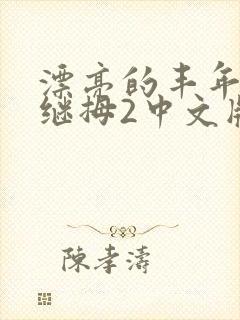 漂亮的丰年
继拇2中文版
陳孝濤